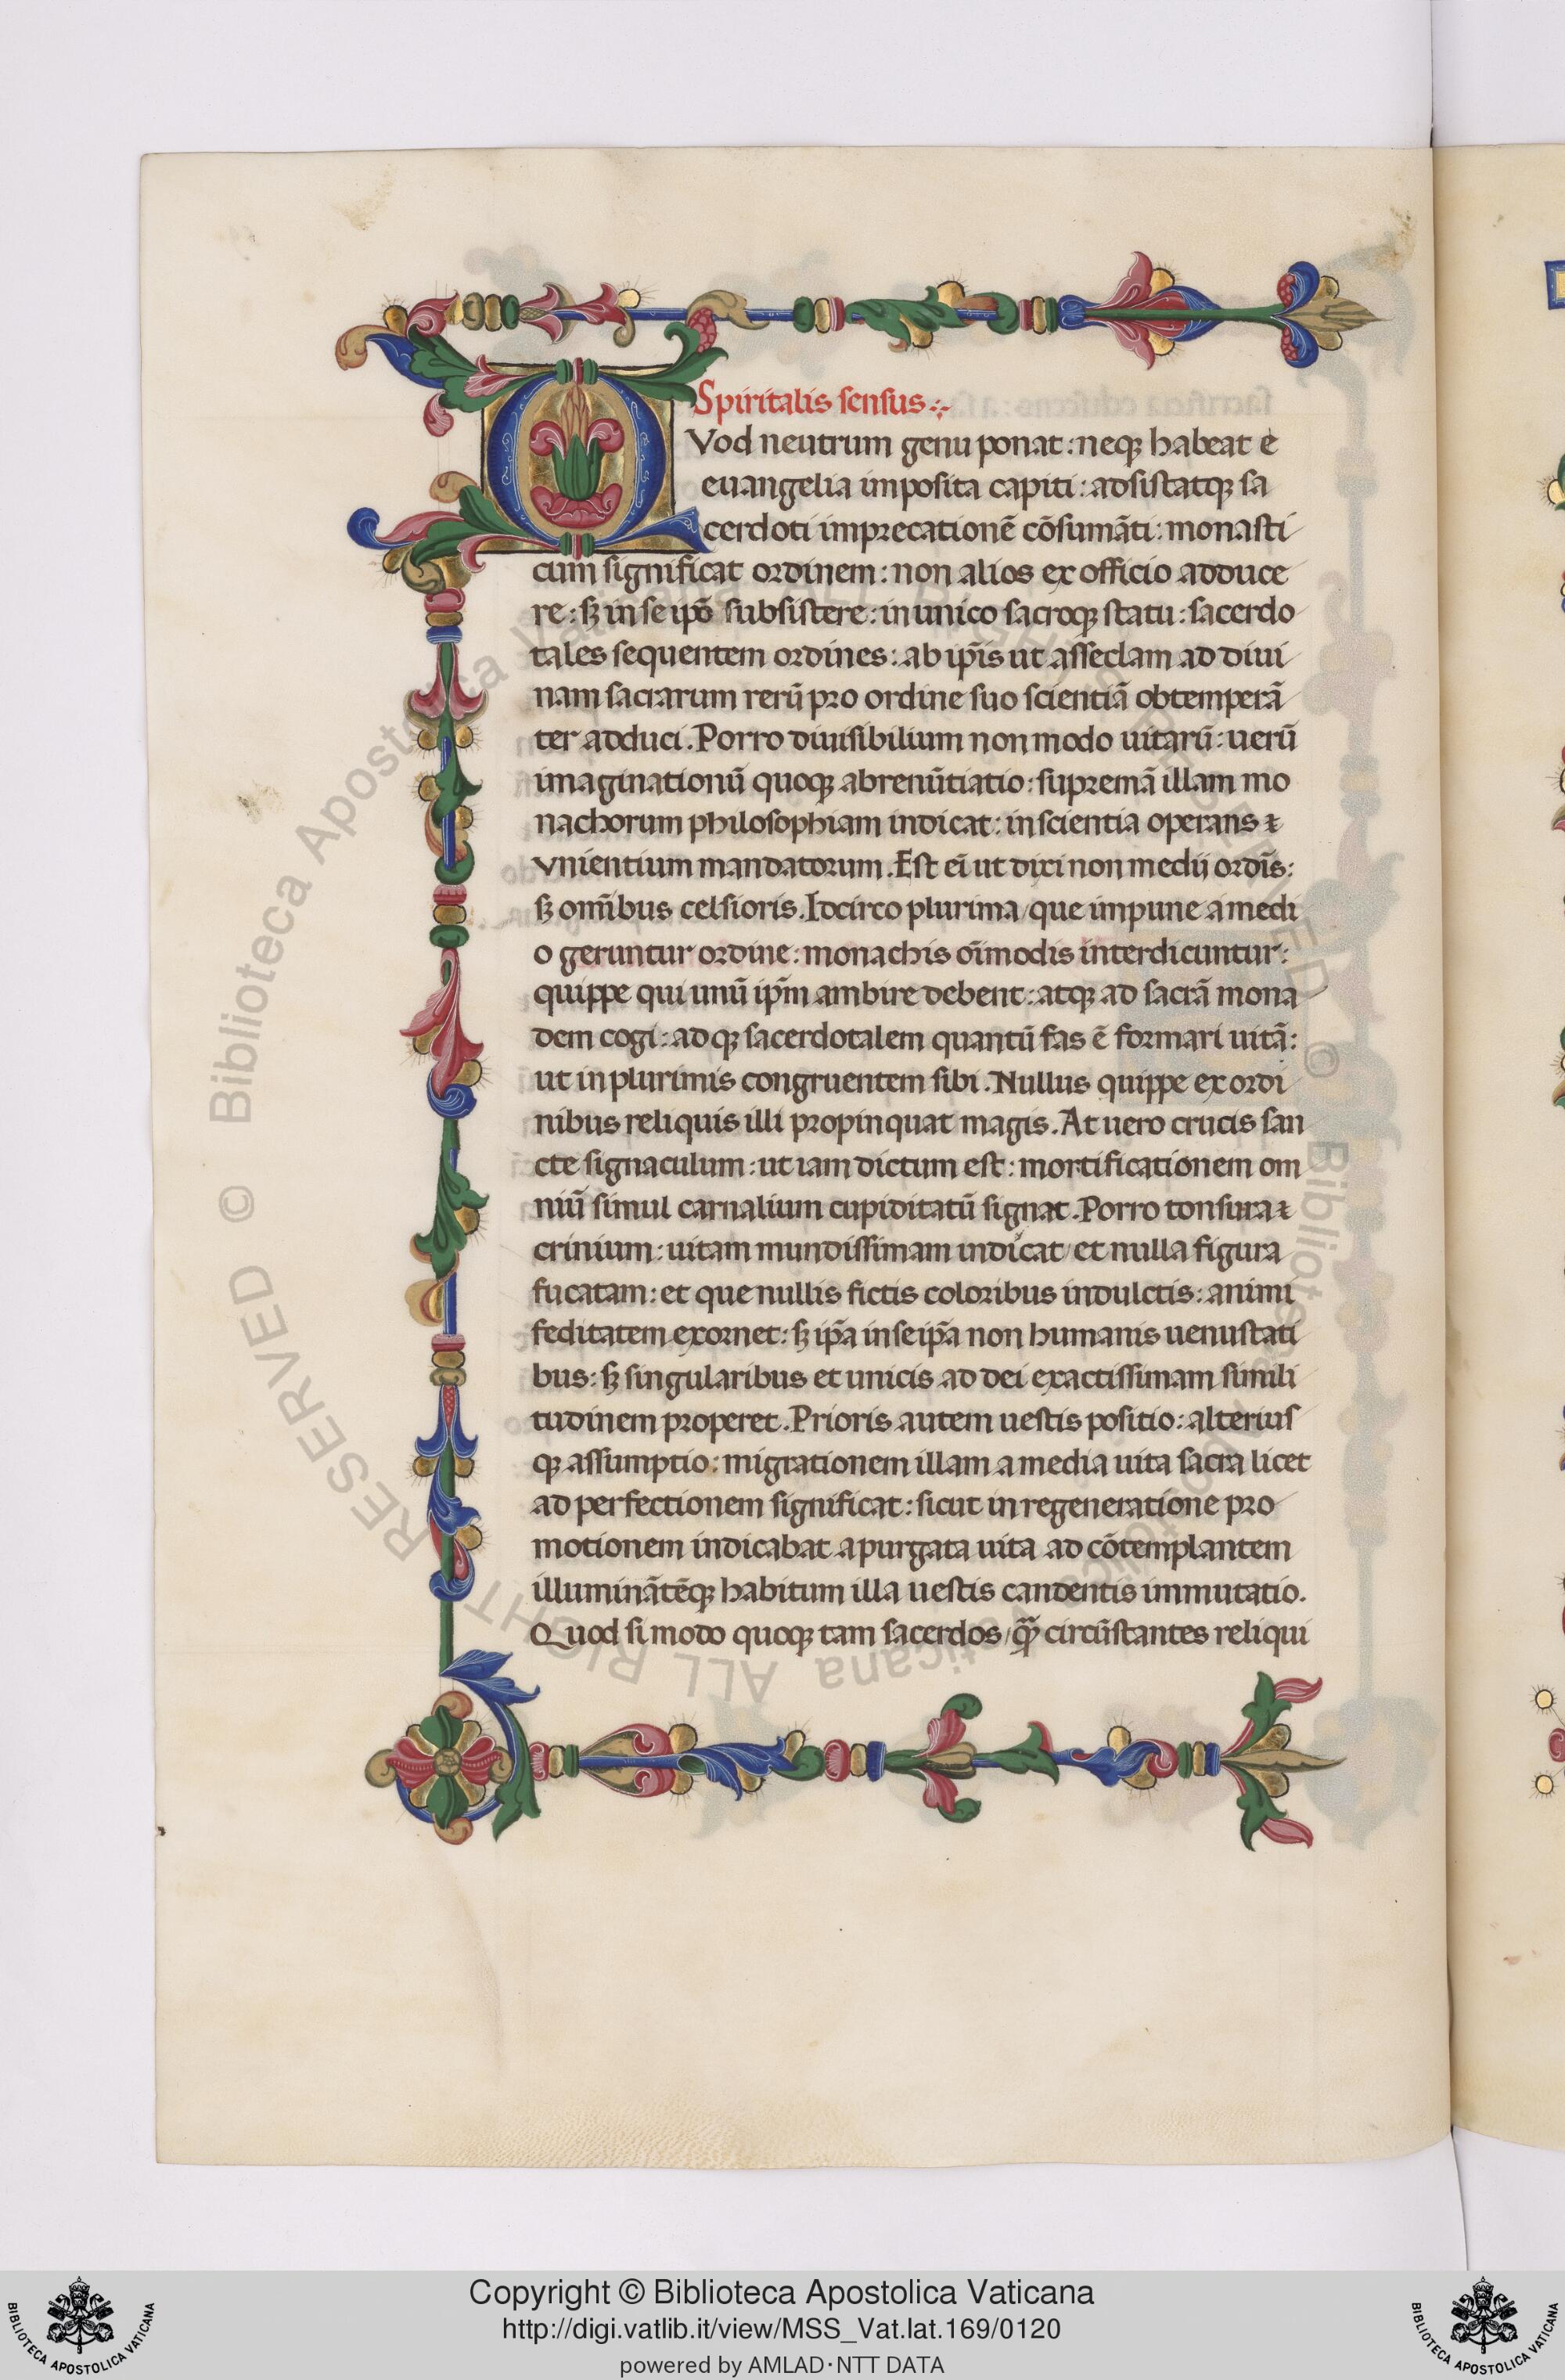 Spiritalis sensus:
QVod neutrum genu ponat: neqꝫ habeat e
euangelia imposita capiti: adsistatqꝫ sa
cerdoti imprecationē cōsumāti: monasti
cum significat ordinem: non alios ex officio adduce
re: sꝫ in se ipō subsistere: in unico sacroqꝫ statu: sacerdo
tales sequentem ordines: ab ip̄is ut asseclam ad diui
nam sacrarum rerū pro ordine suo scientiā obtemperā
ter adduci. Porro diuisibilium non modo uitarū: uerū
imaginationū quoqꝫ abrenūtiatio: supremā illam mo
nachorum philosophiam indicat: in scientia operans ⁊
vnientium mandatorum. Est ei̅ ut dixi non medij ordīs:
sꝫ omībus celsioris. Idcirco plurima / que impune a medi
o geruntur ordine: monachis oīmodis interdicuntur:
quippe qui unū ip̄m ambire debent: atqꝫ ad sacrā mona
dem cogi: ad qꝫ sacerdotalem quantū fas ē formari uitā:
ut in plurimis congruentem sibi. Nullus quippe ex ordi
nibus reliquis illi propinquat magis. At uero crucis san
cte signaculum: ut iam dictum est: mortificationem om
niū simul carnalium cupiditatū signat. Porro tonsura ⁊
crinium: uitam mundissimam indicat / et nulla figura
fucatam: et que nullis fictis coloribus indulctis: animi
feditatem exornet: sꝫ ip̄a in se ip̄a non humanis uenustati
bus: sꝫ singularibus et unicis ad dei exactissimam simili
tudinem properet. Prioris autem uestis positio: alterius
qꝫ assumptio: migrationem illam a media uita sacra licet
ad perfectionem significat: sicut in regeneratione pro
motionem indicabat a purgata uita ad cōtemplantem
illuminātēqꝫ habitum illa uestis candentis immutatio.
Quod si modo quoqꝫ tam sacerdos / qꝫ̄ circūstantes reliqui
© Biblioteca Apostolica Vaticana ALL RIGHT RESERVED
Copyright © Biblioteca Apostolica Vaticana
http://digi.vatlib.it/view/MSS_Vat.lat.169/0120
powered by AMLAD·NTT DATA
BIBLIOTECA APOSTOLICA VATICANA
BIBLIOTECA APOSTOLICA VATICANA